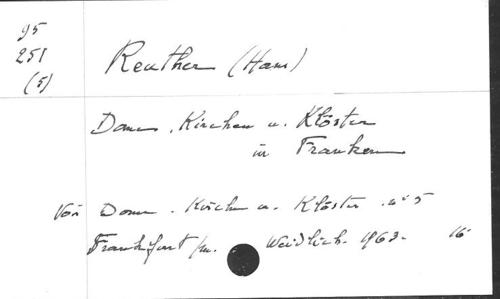 95
251
(5)
Reuther (Hans)
Dome, Kirchen u. Klöster
in Franken
Voir Dome, Kirchen u. Klöster. n° 5
Frankfurt /m. Weidlich. 1963. 16